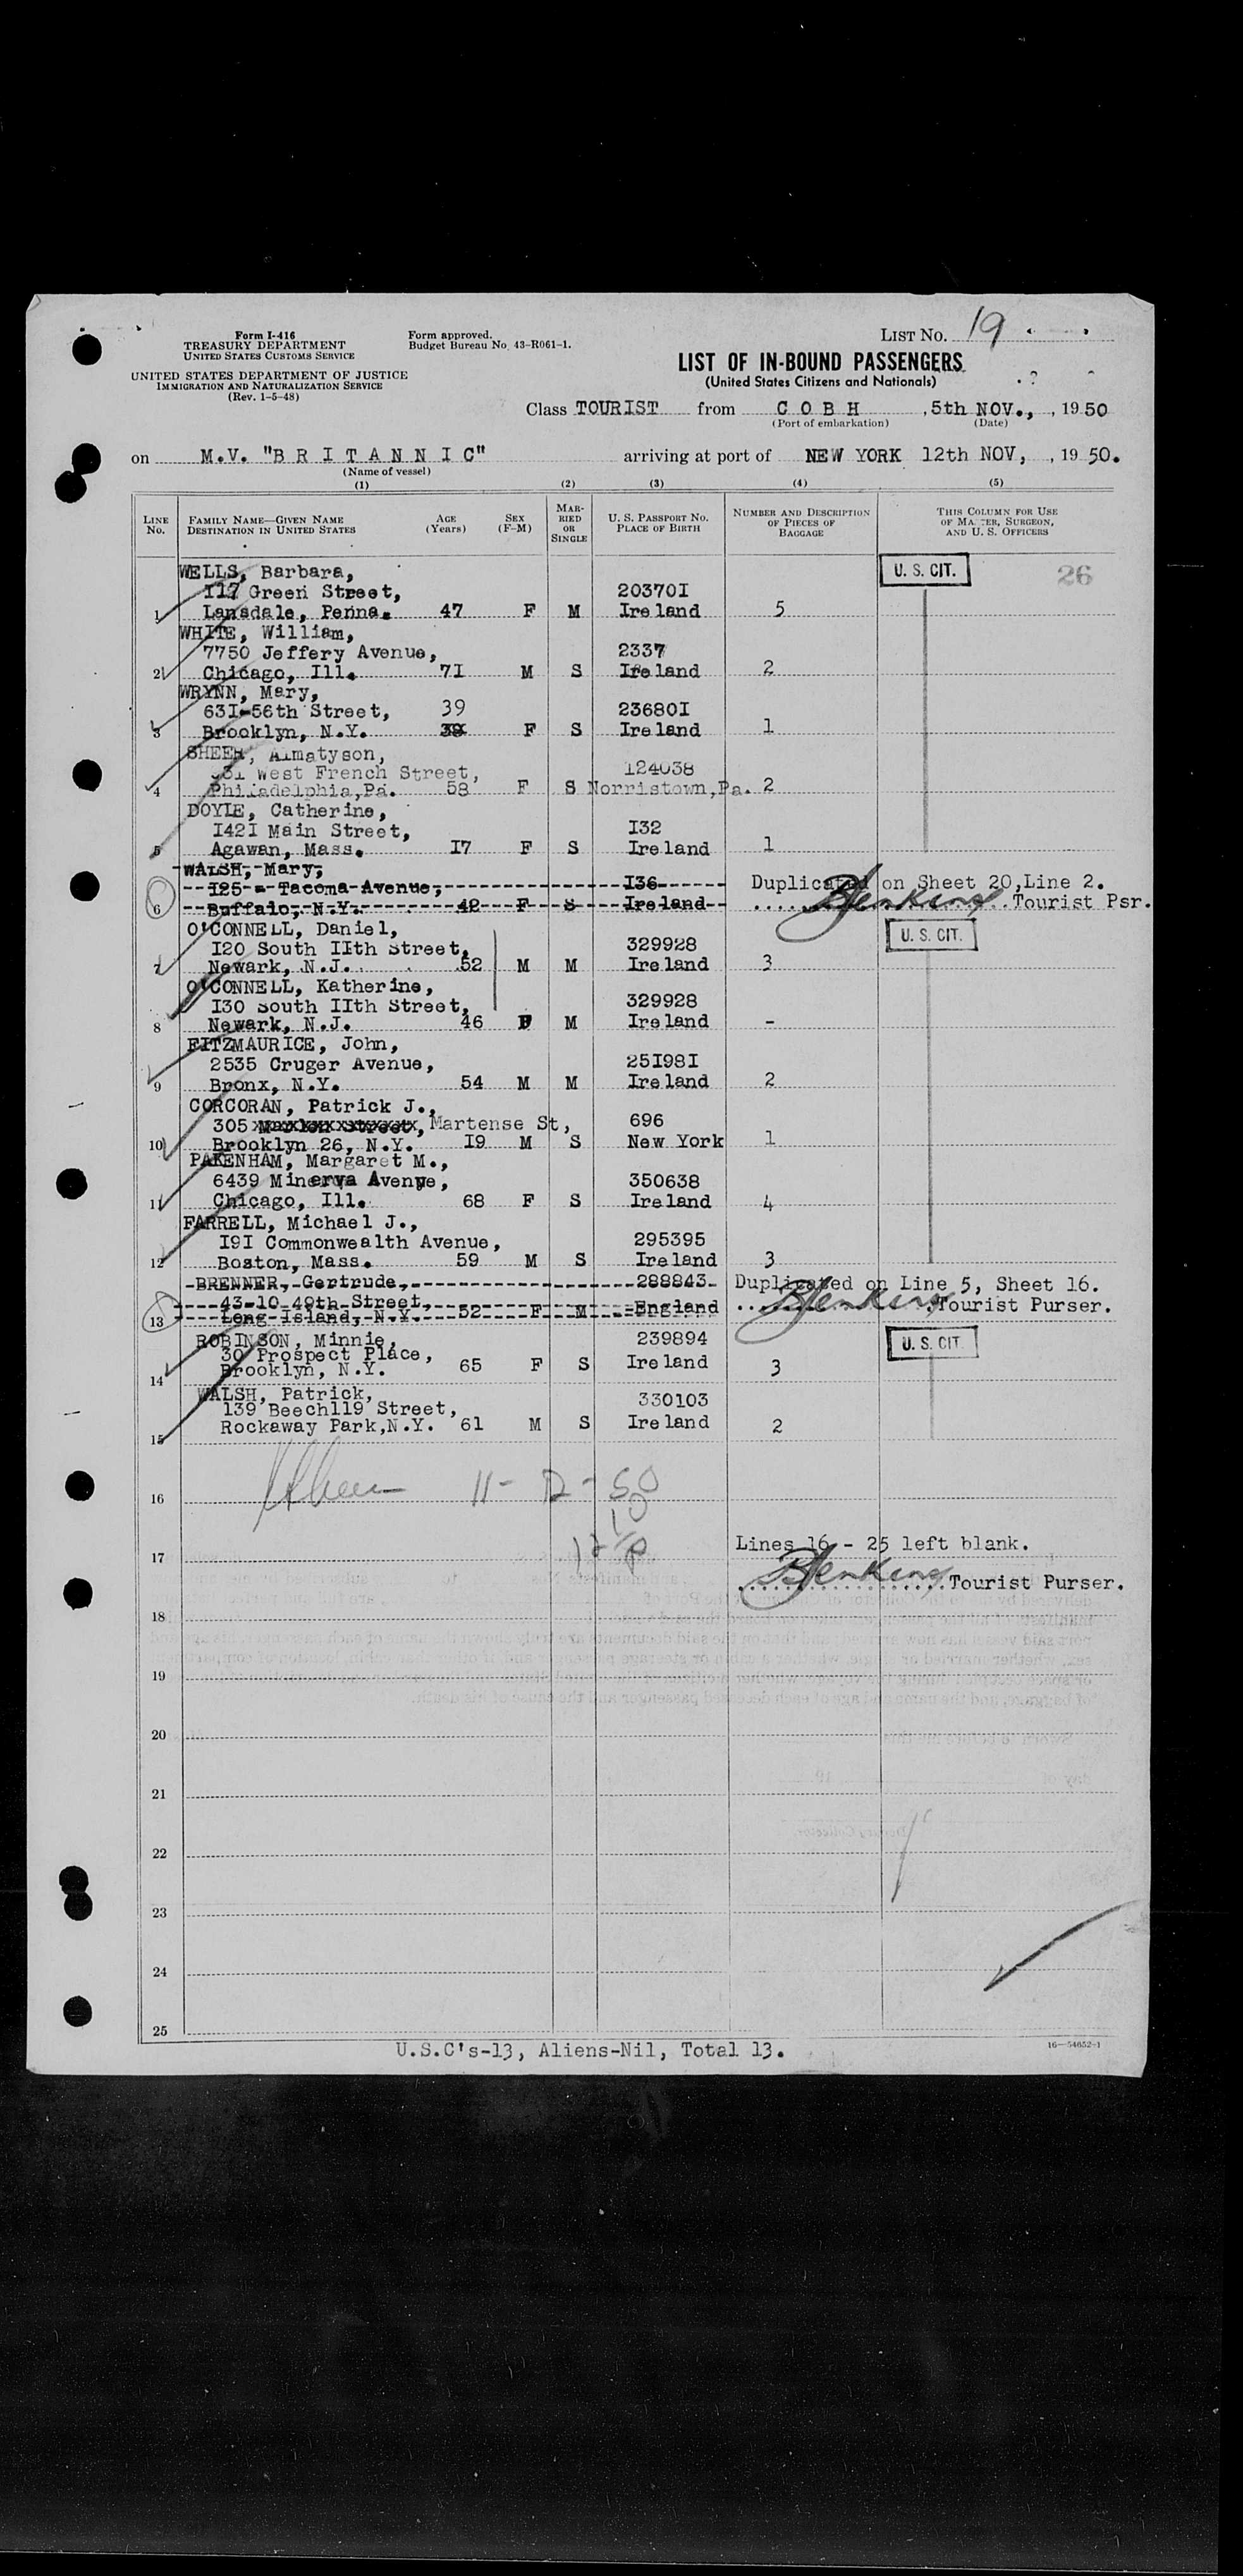 Form I-416
TREASURY DEPARTMENT
UNITED STATES CUSTOMS SERVICE
UNITED STATES DEPARTMENT OF JUSTICE
IMMIGRATION AND NATURALIZATION SERVICE
(Rev. 1-5-48)
Form approved.
Budget Bureau No. 43-R061-1.
LIST NO. 19
LIST OF IN-BOUND PASSENGERS
(United States Citizens and Nationals)
Class TOURIST from C O B H , 5th NOV., , 19 50
(Port of embarkation) (Date)
on M.V. "B R I T A N N I C" arriving at port of NEW YORK 12th NOV, , 19 50.
(Name of vessel)
(1) (2) (3) (4) (5)
LINE No. FAMILY NAME—GIVEN NAME DESTINATION IN UNITED STATES AGE (Years) SEX (F-M) MARRIED OR SINGLE U. S. PASSPORT NO. PLACE OF BIRTH NUMBER AND DESCRIPTION OF PIECES OF BAGGAGE THIS COLUMN FOR USE OF MASTER, SURGEON, AND U. S. OFFICERS
WELLS, Barbara, U. S. CIT. 26
117 Green Street, 20370I
1 Lansdale, Penna. 47 F M Ireland 5
WHITE, William,
7750 Jeffery Avenue, 2337
2 Chicago, Ill. 7I M S Ireland 2
WRYNN, Mary,
63I-56th Street, 39 23680I
3 Brooklyn, N.Y. 38 F S Ireland 1
SHEER, Almatyson,
West French Street, 124038
4 Philadelphia,Pa. 58 F S Norristown,Pa. 2
DOYLE, Catherine,
I42I Main Street, I32
5 Agawan, Mass. I7 F S Ireland 1
WALSH, Mary,
I25 - Tacoma Avenue, I36 Duplicated on Sheet 20,Line 2.
6 Buffalo, N.Y. 42 F S Ireland BJenkins Tourist Psr.
O'CONNELL, Daniel, U. S. CIT.
I20 South IIth Street, 329928
7 Newark, N.J. 52 M M Ireland 3
O'CONNELL, Katherine,
I30 South IIth Street, 329928
8 Newark, N.J. 46 F M Ireland -
FITZMAURICE, John,
2535 Cruger Avenue, 25I98I
9 Bronx, N.Y. 54 M M Ireland 2
CORCORAN, Patrick J.,
305 Martense St, 696
10 Brooklyn 26, N.Y. I9 M S New York 1
PAKENHAM, Margaret M.,
6439 Minerva Avenye, 350638
11 Chicago, Ill. 68 F S Ireland 4
FARRELL, Michael J.,
I9I Commonwealth Avenue, 295395
12 Boston, Mass. 59 M S Ireland 3
BRENNER, Gertrude, 288843 Duplicated on Line 5, Sheet 16.
43-10 49th Street, BJenkins Tourist Purser.
13 Long Island, N.Y. 52 F M England
ROBINSON, Minnie, 239894 U. S. CIT.
30 Prospect Place,
14 Brooklyn, N.Y. 65 F S Ireland 3
WALSH, Patrick, 330103
139 Beech119 Street,
15 Rockaway Park,N.Y. 61 M S Ireland 2
16 11-12-50
12 10 P
17 Lines 16 - 25 left blank.
BJenkins Tourist Purser.
18
19
20
21
22
23
24
25
U.S.C's-13, Aliens-Nil, Total 13.
16—54652-1